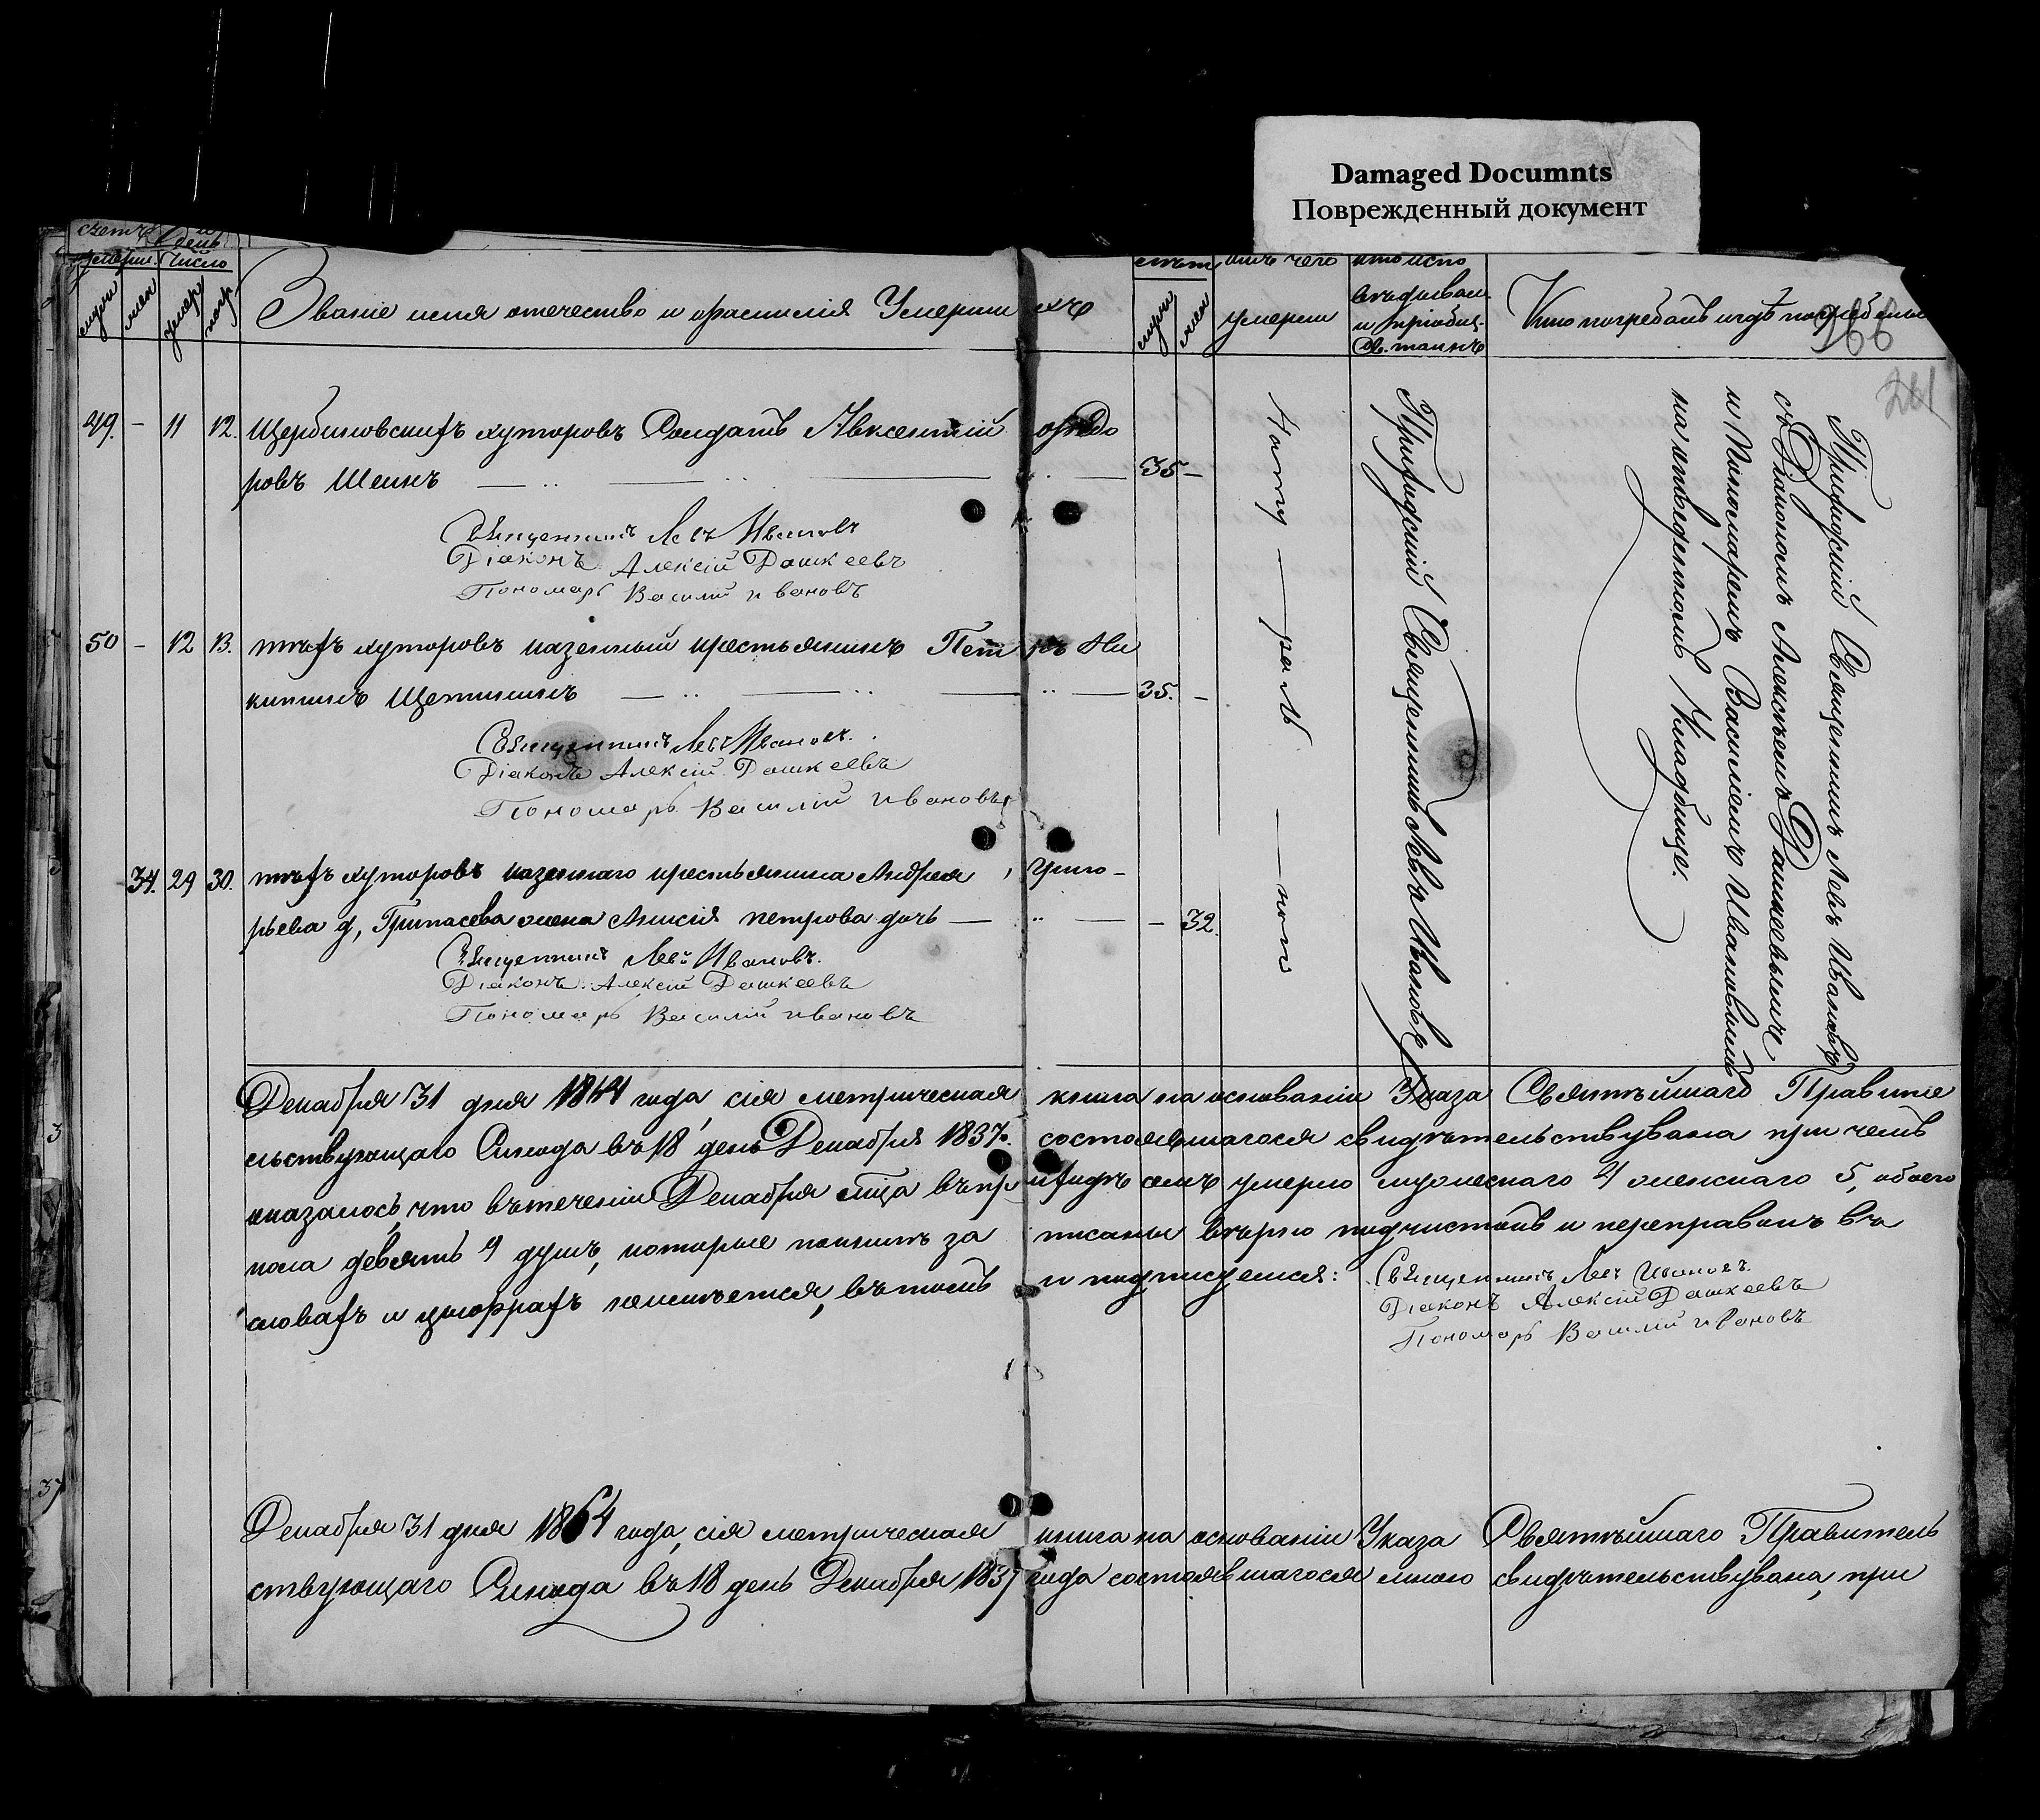 Damaged Documnts
Поврежденный документ
счетъ и день
умерш. Число
мужи жен умер погр
Званіе имя отечество и фамилія Умерши хъ
лѣт отъ чего кто испо
мужи жен умерли вѣдывал и пріобщ. св. таинъ
Кто погребалъ и гдѣ погребены
266
261
49. — 11 12. Щербиновскихъ хуторовъ Солдатъ Авксентій Ѳедо
ровъ Шеинъ 35 —
Священникъ Левъ Ивановъ
Діаконъ Алексій Дашкеевъ
Пономарь Василій ивановъ
50 — 12 13. тѣхъ хуторовъ казенный крестьянинъ Пет ръ Ни
китинъ Щетининъ 35. —
Священникъ Левъ Ивановъ.
Діаконъ Алексій Дашкеевъ
Пономарь Василій ивановъ
34. 29 30. тѣхъ хуторовъ казеннаго крестьянина Андрея Григо—
рьева жена Анисія петрова дочь — — 32.
Священникъ Левъ Ивановъ.
Діаконъ Алексій Дашкеевъ
Пономарь Василій ивановъ
Приходскій Священникъ Левъ Ивановъ
Приходскій Священникъ Левъ Ивановъ
съ Діакономъ Алексѣемъ Дашкеевымъ
и Пономаремъ Василіемъ Ивановымъ
на отведенномъ Кладбище.
Декабря 31 дня 1864 года, сія метрическая книга на основаніи Указа Святѣйшаго Правите
льствующаго Синода въ 18 день Декабря 1837. состоявшагося свидѣтельствувана при чемъ
оказалось, что въ теченіи Декабря мца въ при ходѣ семъ умерло мужескаго 4 женскаго 5, обоего
пола девять 9 душъ, которые писаны вѣрно подчистокъ и переправокъ въ
словахъ и цыфрахъ неимѣется, въ томъ и подписуемся:
Священникъ Левъ Ивановъ.
Діаконъ Алексій Дашкеевъ
Пономарь Василій ивановъ
Декабря 31 дня 1864 года, сія метрическая книга на основаніи Указа Святѣйшаго Правитель
ствующаго Синода въ 18 день Декабря 1837 года состоявшагося мною свидѣтельствувана, при